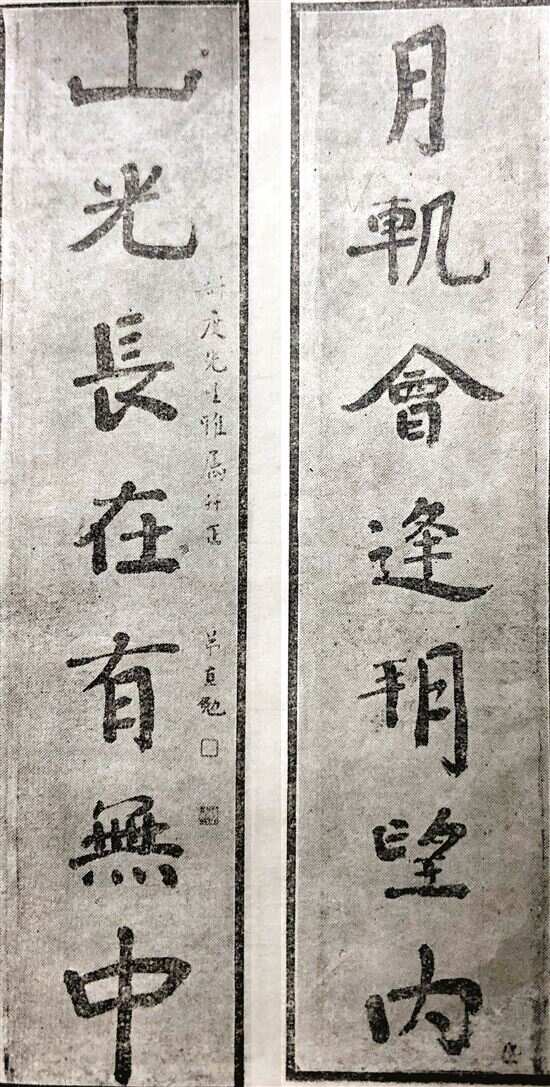 月軌會逢朔望內
山光長在有無中
度先生雅屬并正
直勉